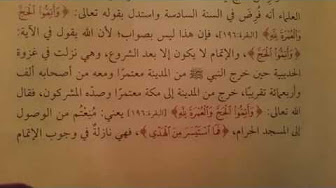 العلماء أنه فُرِضَ في السنة السادسة واستدل بقوله تعالى: ﴿وَأَتِمُّوا۟ ٱلْحَجَّ
وَٱلْعُمْرَةَ لِلَّهِ﴾ [البقرة: ١٩٦]، فإن هذا ليس بصواب؛ لأن الله يقول في الآية:
﴿وَأَتِمُّوا۟ ٱلْحَجَّ﴾، والإتمام لا يكون إلا بعد الشروع، وهي نزلت في غزوة
الحديبية حين خرج النبي ﷺ من المدينة معتمرًا ومعه من أصحابه ألف
وأربعمائة تقريبًا، خرج من المدينة إلى مكة معتمرًا وصدَّه المشركون، فقال
الله تعالى: ﴿وَأَتِمُّوا۟ ٱلْحَجَّ وَٱلْعُمْرَةَ لِلَّهِ﴾ [البقرة: ١٩٦] يعني: مُنِعْتُم من الوصول
إلى المسجد الحرام، ﴿فَمَا ٱسْتَيْسَرَ مِنَ ٱلْهَدْىِ﴾، فهي نازلةٌ في وجوب الإتمام